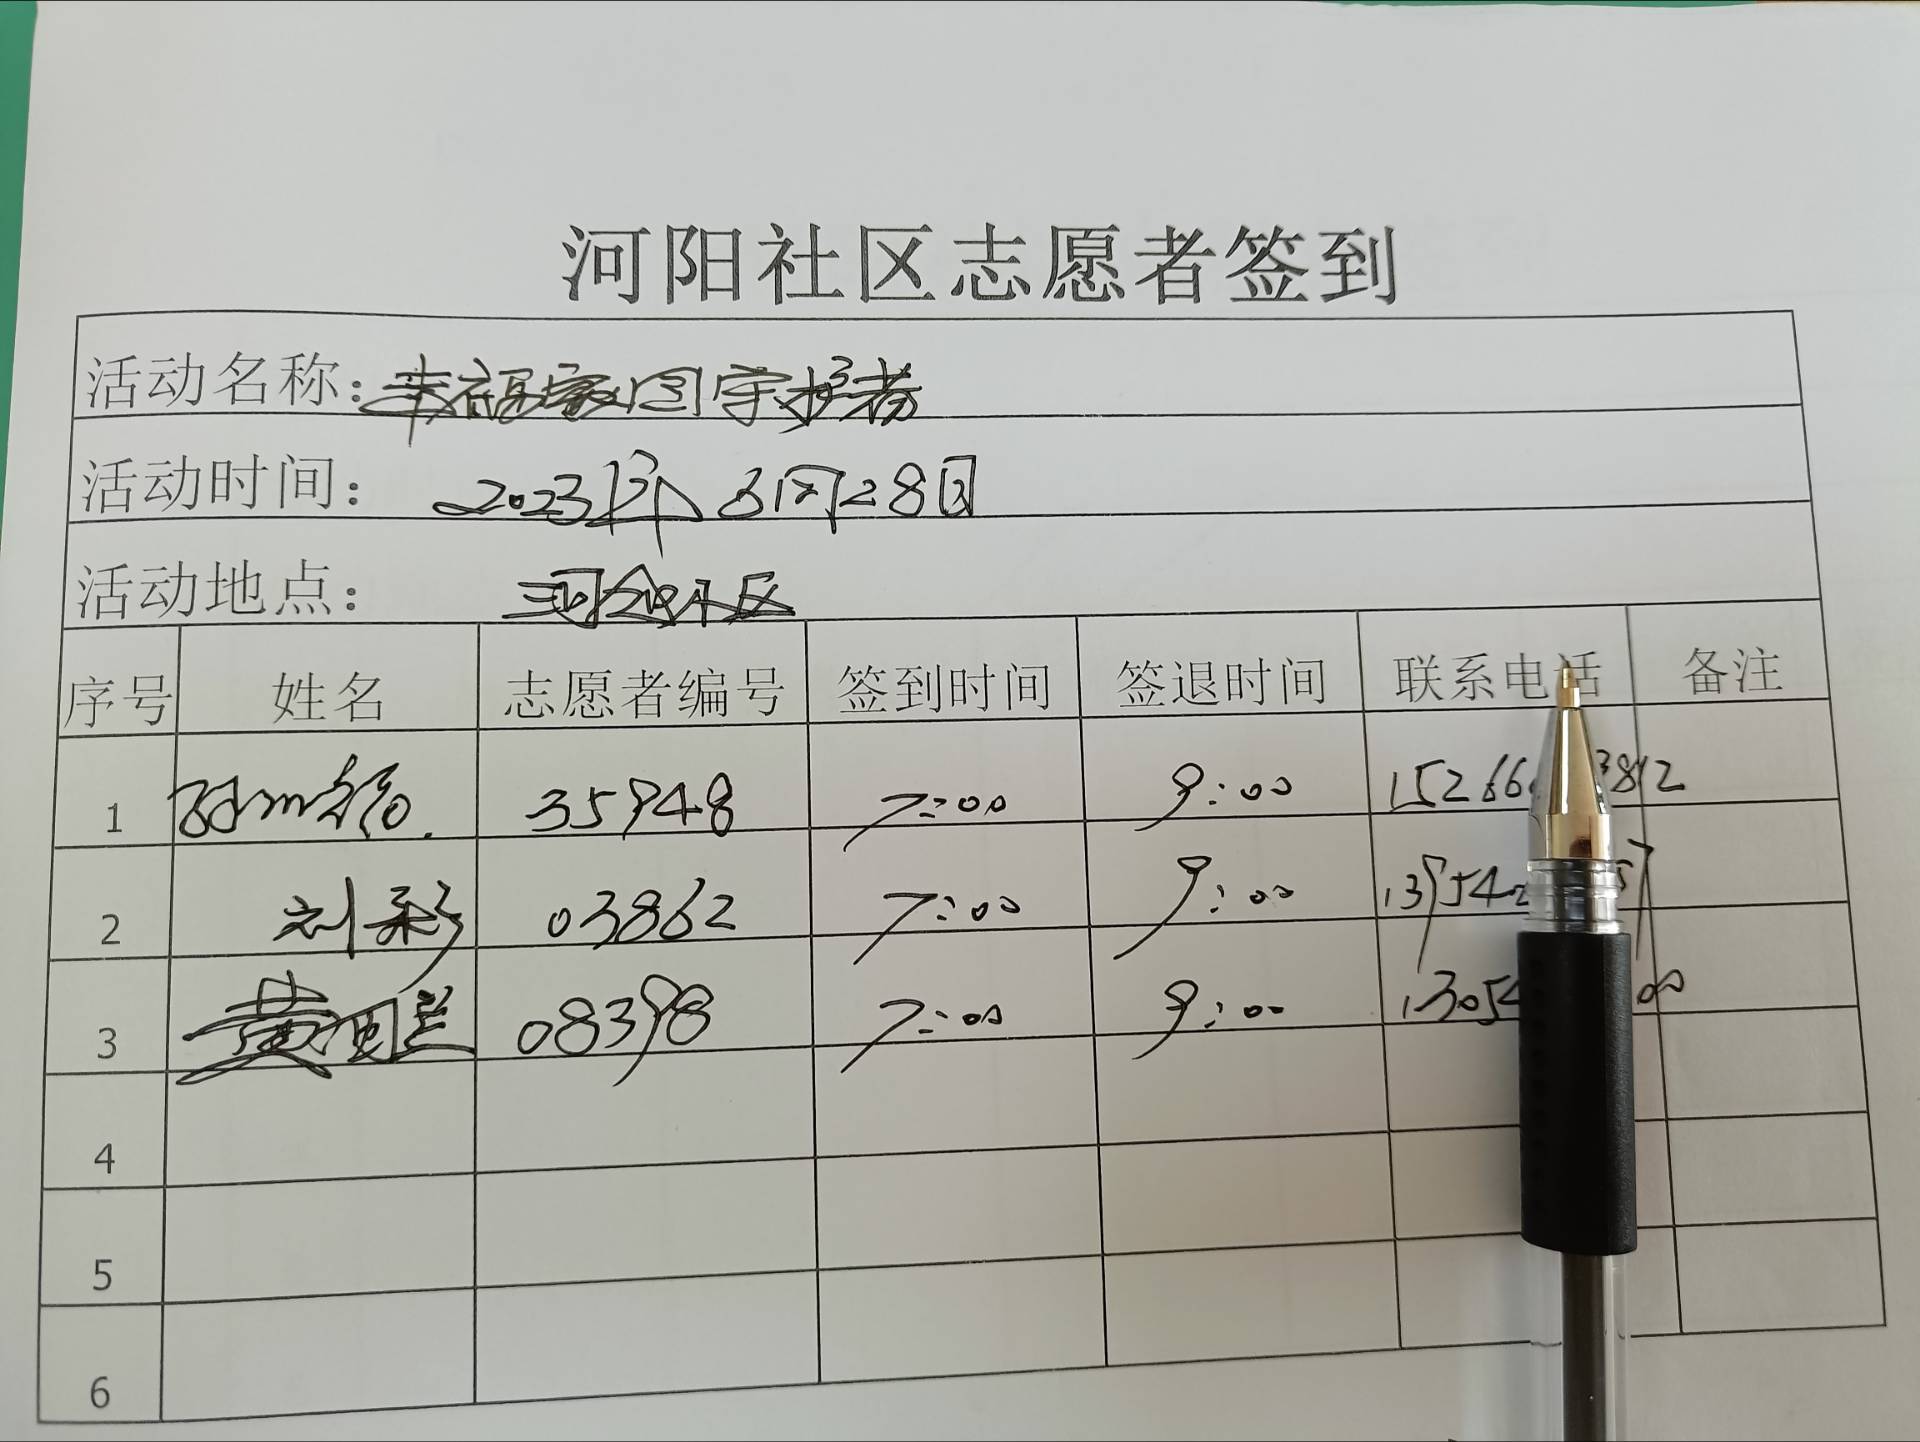 河阳社区志愿者签到
活动名称：幸福家园守护者
活动时间： 2023年6月28日
活动地点： 河阳社区
序号 姓名 志愿者编号 签到时间 签退时间 联系电话 备注
1 35948 7:00 9:00 15266 3812
2 刘彩 03862 7:00 9:00 13954 57
3 黄 兰 08398 7:00 9:00 13054 00
4
5
6